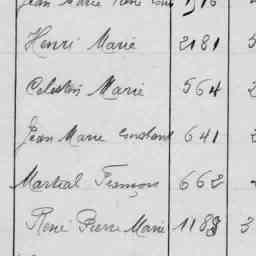 Jean Marie René
Henri Marie 2181 5
Celestin Marie 564 2
Jean Marie Constant 641 2
Martial François 662 2
René Pierre Marie 1183 3